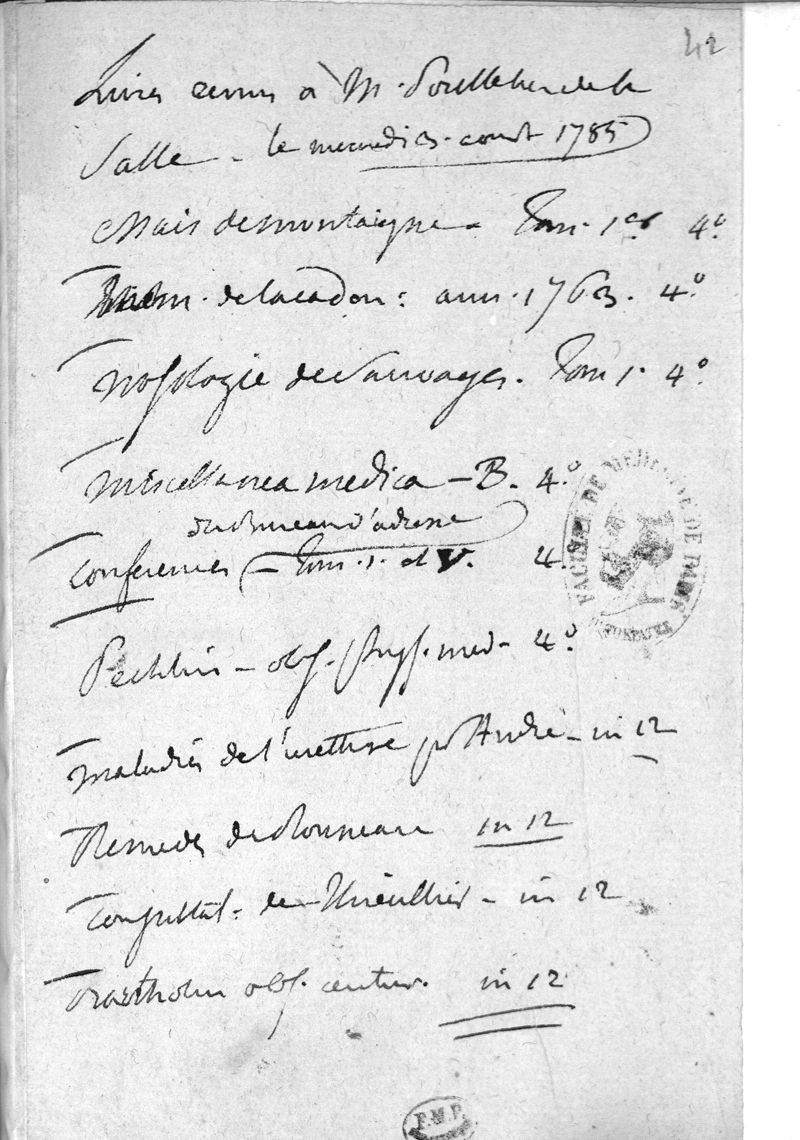 42
Livres remis à M. Poulletier de la
Salle - le mercredi 3. court 1785
essais de montaigne - Tom. 1er 4.°
mém. de l'acad on: ann. 1763. 4.°
nosologie de Sauvages. Tom 1. 4.°
miscellanea medica - B. 4.°
du bureau d'adresse
Conferences - Tom. 1. et V. 4.
Pechlin - obs. phys. med - 4.°
maladies de l'urethre pr André - in 12
Remedes de Rouneau in 12
Consultat. de Thieullier - in 12
Bartholin obs. centur. in 12
FACULTÉ DE MEDECINE DE PARIS
F.M.P.